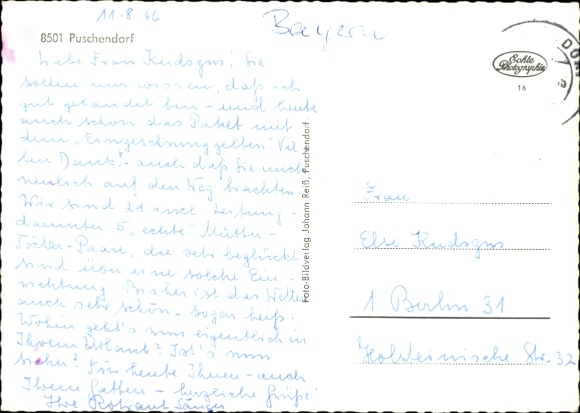 11.8.66
Bayern
8501 Puschendorf
Liebe Frau Kudszus! Sie
sollen nur wissen, daß ich
gut gelandet bin - und heute
auch schon das Paket mit
dem Vie
len Dank! - auch daß Sie mich
neulich auf den Weg brachten.
Wir sind 21 incl. Leitung -
darunter 5 "echte" Mütter-
Töchter-Paare, die sehr beglückt
sind über eine solche Ein-
richtung. Bisher ist das Wetter
auch sehr schön - sogar heiß.
Wohin geht's nun eigentlich in
Ihrem Urlaub? Ist's nun
sicher? Für heute Ihnen - auch
Ihrem Gatten - herzliche Grüße!
Ihre
Foto-Bildverlag Johann Reiß, Puschendorf
Echte
Photographie
16
Frau
Else Kudszus
1 Berlin 31
Holsteinische Str. 32